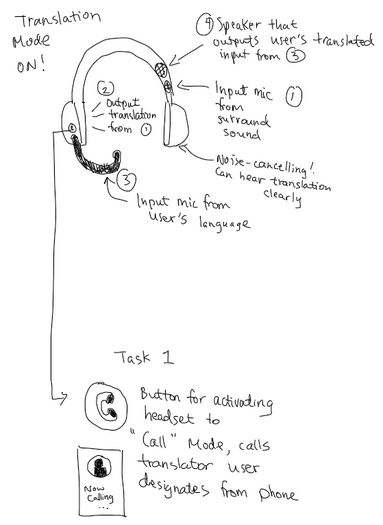 Translation
Mode
ON!
④ Speaker that
outputs user's translated
input from ③
Input mic ①
from
surround
sound
② 
output
translation
from ①
Noise-cancelling!
Can hear translation
clearly
③
Input mic from
user's language
Task 1
Button for activating
headset to
"Call" Mode, calls
translator user
designates from phone
Now
Calling
...